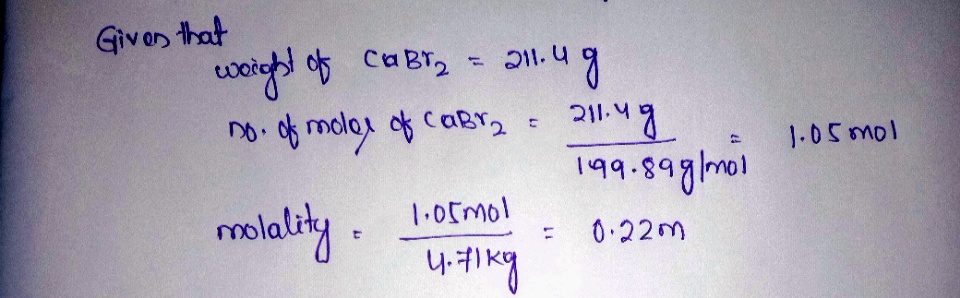 Given that
weight of CaBr2 = 211.4 g
no. of moles of CaBr2 = 211.4 g / 199.89 g/mol = 1.05 mol
molality = 1.05 mol / 4.71 kg = 0.22 m